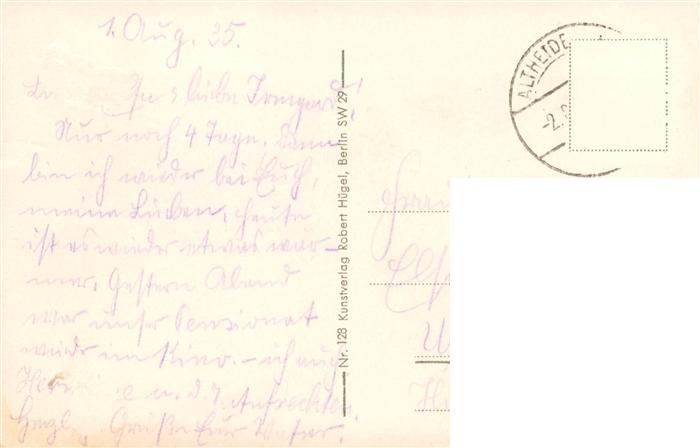 1. Aug. 35.
liebe Irmgard!
Nur noch 4 Tage. Dann
bin ich wieder bei Euch,
meine Lieben, heute
ist es wieder etwas wär-
mer. Gestern Abend
war unser Pensionat
wieder im Kino. – ich
u. d. 7 Aufrechten.
Herzl. Grüße Euer Vater.
Nr. 128 Kunstverlag Robert Hügel, Berlin SW 29
ALTHEIDE
-2.